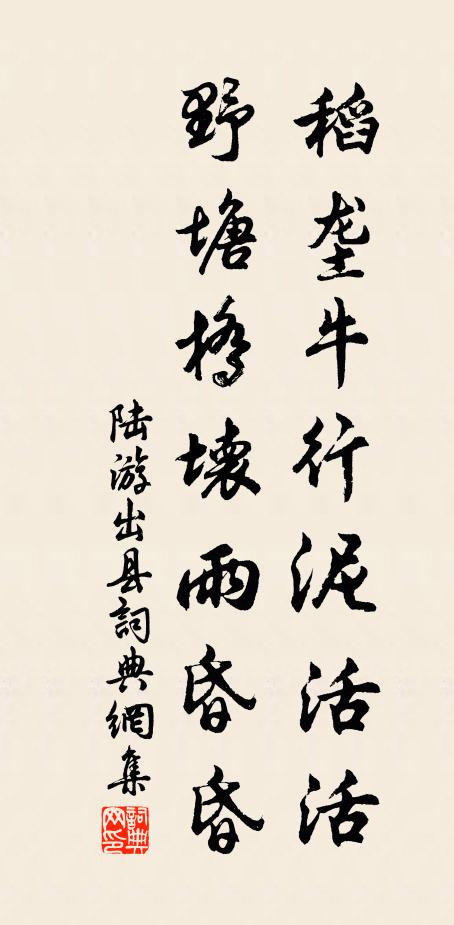 稻垄牛行泥活活
野塘橋壊雨昏昏
陆游出县詞典網集
詞典网印